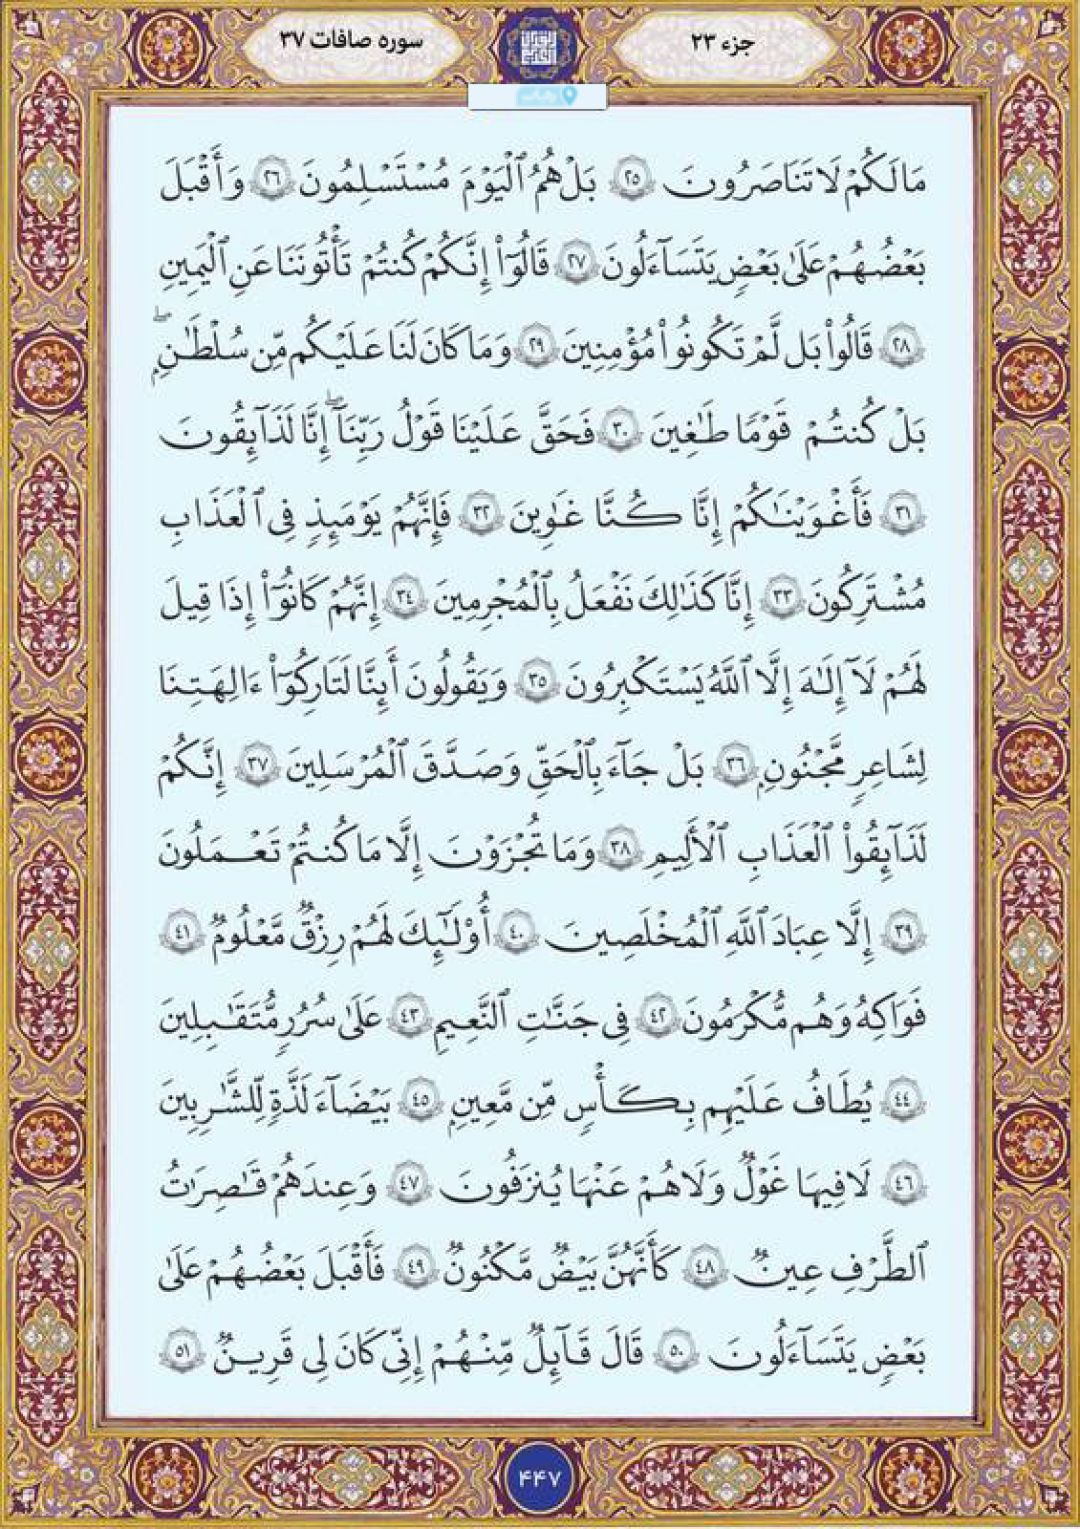 جزء ۲۳
سوره صافات ۳۷
مَا لَكُمْ لَا تَنَاصَرُونَ ٢٥ بَلْ هُمُ ٱلْيَوْمَ مُسْتَسْلِمُونَ ٢٦ وَأَقْبَلَ
بَعْضُهُمْ عَلَىٰ بَعْضٍ يَتَسَآءَلُونَ ٢٧ قَالُوٓا۟ إِنَّكُمْ كُنتُمْ تَأْتُونَنَا عَنِ ٱلْيَمِينِ
٢٨ قَالُوا۟ بَل لَّمْ تَكُونُوا۟ مُؤْمِنِينَ ٢٩ وَمَا كَانَ لَنَا عَلَيْكُم مِّن سُلْطَٰنٍۭ ۖ
بَلْ كُنتُمْ قَوْمًا طَٰغِينَ ٣٠ فَحَقَّ عَلَيْنَا قَوْلُ رَبِّنَآ ۖ إِنَّا لَذَآئِقُونَ
٣١ فَأَغْوَيْنَٰكُمْ إِنَّا كُنَّا غَٰوِينَ ٣٢ فَإِنَّهُمْ يَوْمَئِذٍ فِى ٱلْعَذَابِ
مُشْتَرِكُونَ ٣٣ إِنَّا كَذَٰلِكَ نَفْعَلُ بِٱلْمُجْرِمِينَ ٣٤ إِنَّهُمْ كَانُوٓا۟ إِذَا قِيلَ
لَهُمْ لَآ إِلَٰهَ إِلَّا ٱللَّهُ يَسْتَكْبِرُونَ ٣٥ وَيَقُولُونَ أَئِنَّا لَتَارِكُوٓا۟ ءَالِهَتِنَا
لِشَاعِرٍ مَّجْنُونٍۭ ٣٦ بَلْ جَآءَ بِٱلْحَقِّ وَصَدَّقَ ٱلْمُرْسَلِينَ ٣٧ إِنَّكُمْ
لَذَآئِقُوا۟ ٱلْعَذَابِ ٱلْأَلِيمِ ٣٨ وَمَا تُجْزَوْنَ إِلَّا مَا كُنتُمْ تَعْمَلُونَ
٣٩ إِلَّا عِبَادَ ٱللَّهِ ٱلْمُخْلَصِينَ ٤٠ أُو۟لَٰٓئِكَ لَهُمْ رِزْقٌ مَّعْلُومٌ ٤١
فَوَاكِهُ وَهُم مُّكْرَمُونَ ٤٢ فِى جَنَّٰتِ ٱلنَّعِيمِ ٤٣ عَلَىٰ سُرُرٍ مُّتَقَٰبِلِينَ
٤٤ يُطَافُ عَلَيْهِم بِكَأْسٍ مِّن مَّعِينٍۭ ٤٥ بَيْضَآءَ لَذَّةٍ لِّلشَّٰرِبِينَ
٤٦ لَا فِيهَا غَوْلٌ وَلَا هُمْ عَنْهَا يُنزَفُونَ ٤٧ وَعِندَهُمْ قَٰصِرَٰتُ
ٱلطَّرْفِ عِينٌ ٤٨ كَأَنَّهُنَّ بَيْضٌ مَّكْنُونٌ ٤٩ فَأَقْبَلَ بَعْضُهُمْ عَلَىٰ
بَعْضٍ يَتَسَآءَلُونَ ٥٠ قَالَ قَآئِلٌ مِّنْهُمْ إِنِّى كَانَ لِى قَرِينٌ ٥١
۴۴۷